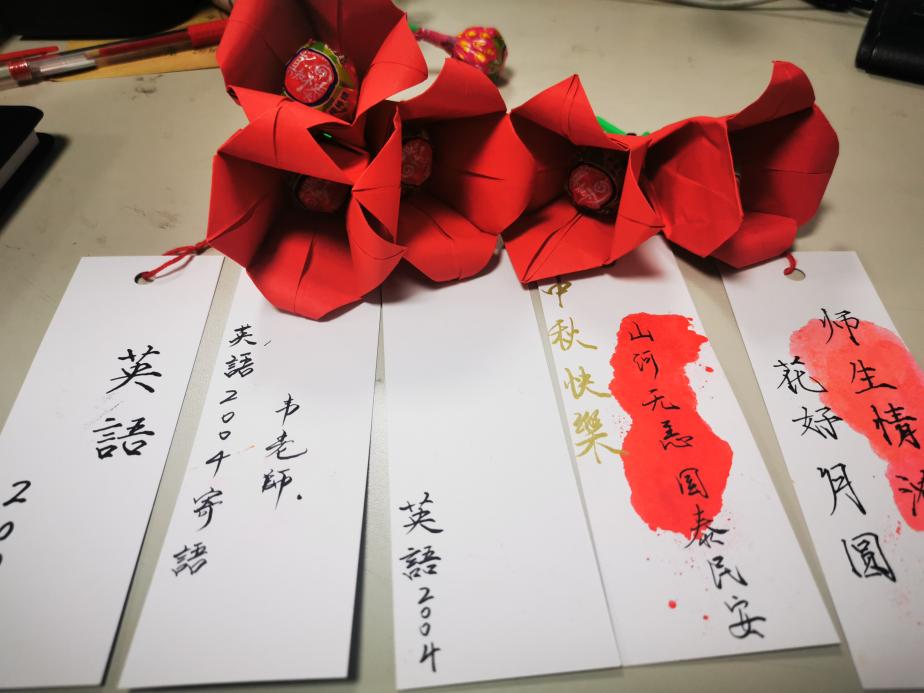 英語
200
英語2004寄語
韦老師.
英語2004
中秋快樂
山河无恙
国泰民安
师生情
花好月圆